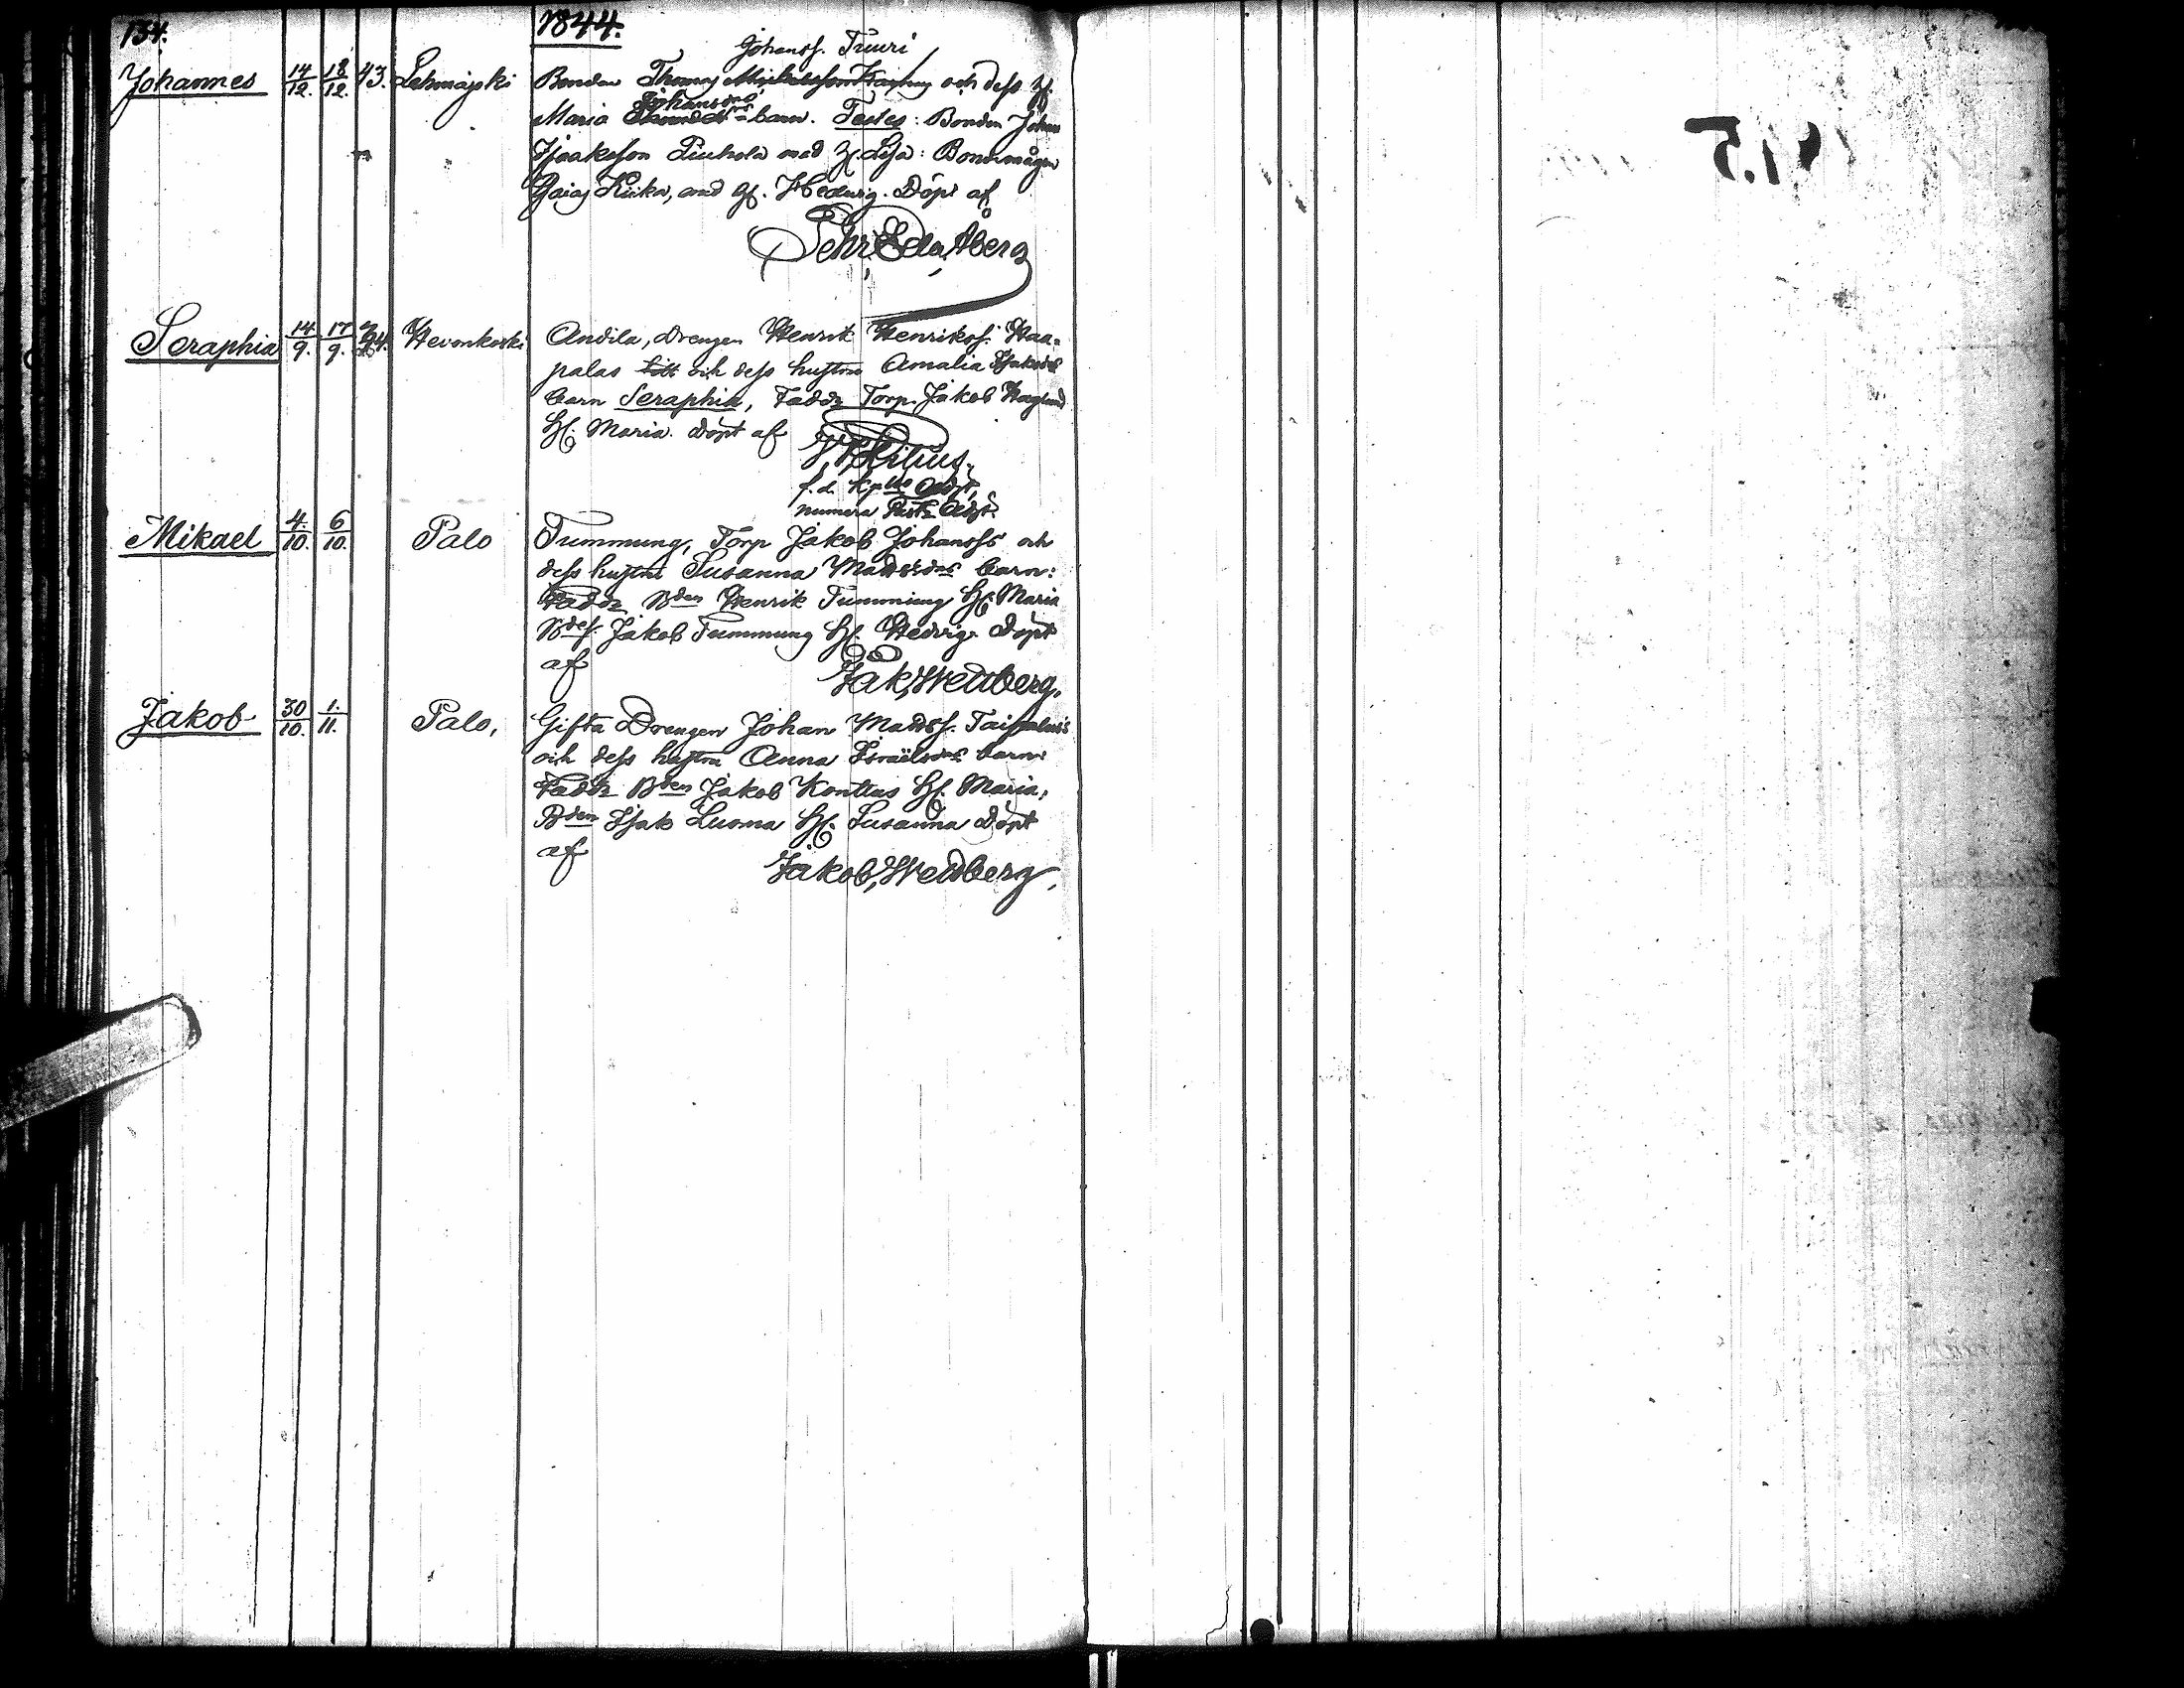 154.
1844.
Johanss. Tuuri
Johannes 14/12. 18/12. 43. Lehmäjoki Bonden Thomas och dess H.
Johansdr
Maria barn. Testes: Bonden Johan
Isaaksson Piuhola med H. Lisa: Bondemågen
Kiika, med H. Hedwig. Döpt af
Pehr Åberg
Seraphia 14/9. 17/9. 34. Hevonkoski Andila, drengen Henrik Henrikss. Haa=
palas och dess hustru Amalia Isaksds
barn Seraphia, Faddr Torp. Jakob Haglund
H. Maria. Döpt af
f.d. Adjt,
numera Past. Adjt.
Mikael 4./10. 6/10. Palo Tummung, Torp Jakob Johanss och
dess hustru Susanna Madsdns barn:
Faddr Bden Henrik Tummung H. Maria
Bdes. Jakob Tummung H. Hedvig. Döpt
af
Jak, Wedberg.
Jakob 30/10. 1./11. Palo, Gifta Drengen Johan Madss. Taipalus's
och dess hustru Anna Israëlsdns barn:
Faddr Bden Jakob Konttus H. Maria,
Bden Isak Luoma H. Susanna Döpt
af
Jakob, Wedberg,